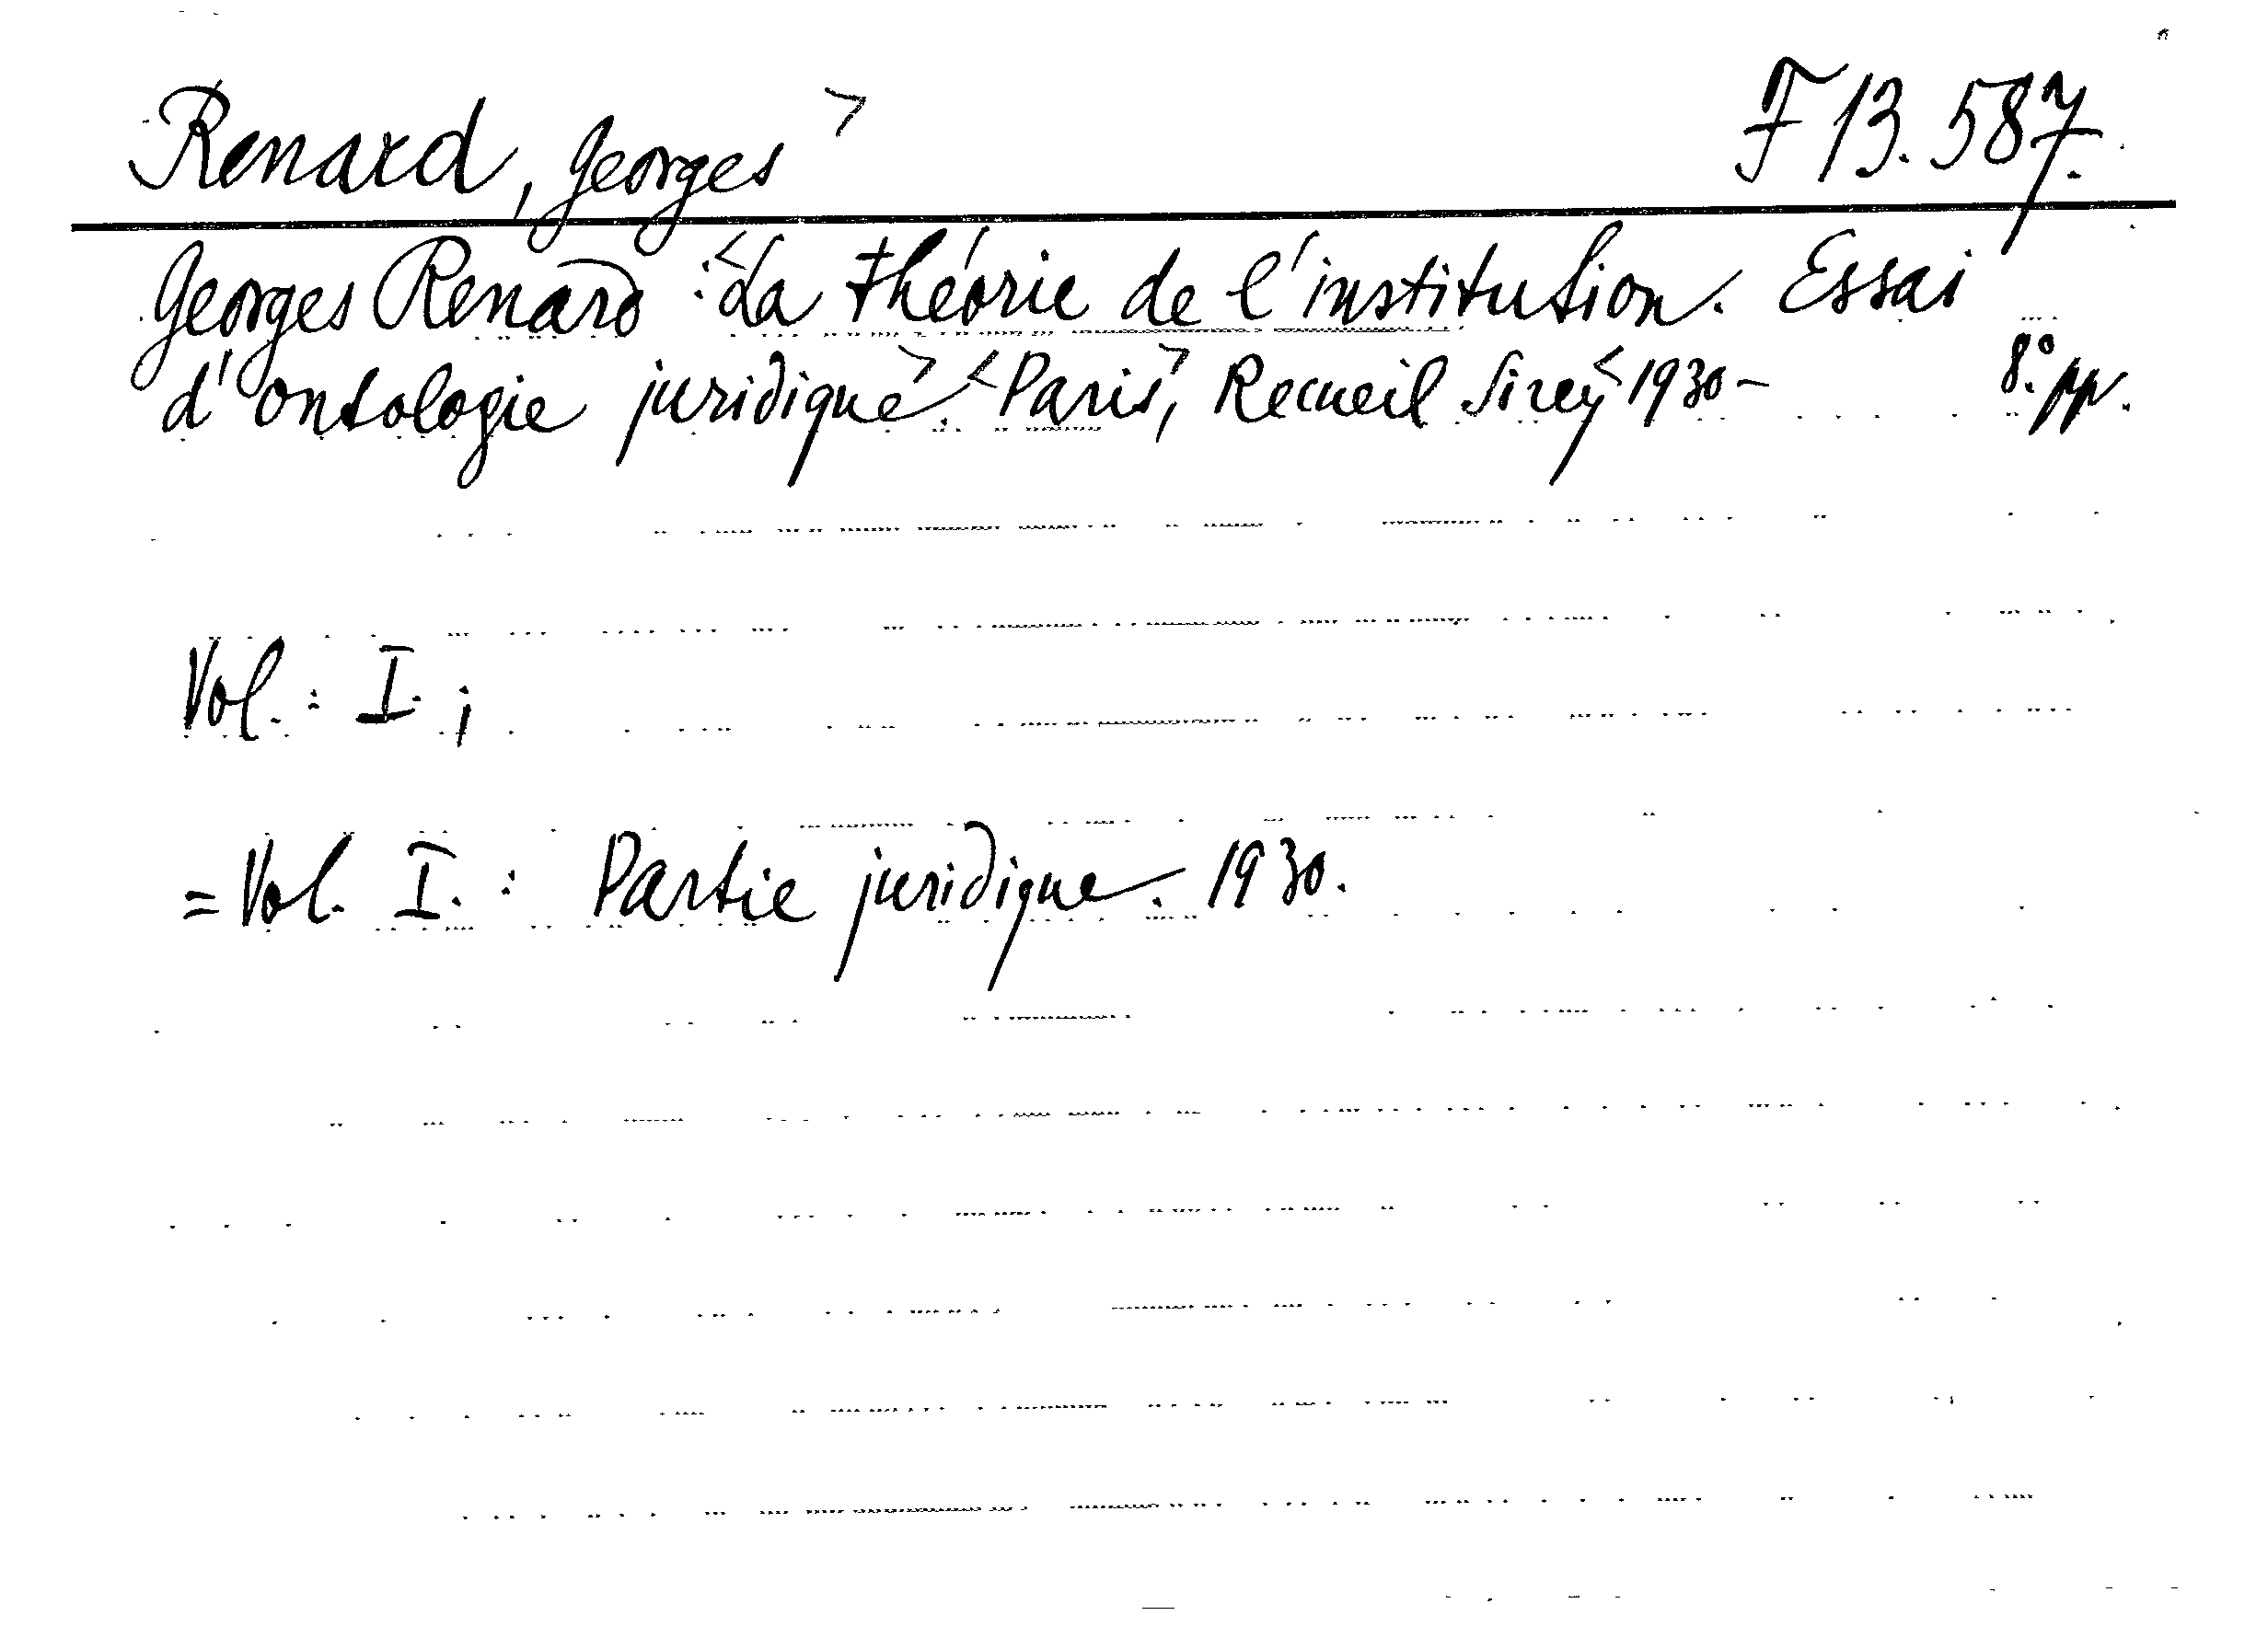 Renard, Georges> F 13.587.
Georges Renard :<La théorie de l'institution. Essai
d'ontologie juridique>. <Paris>, Recueil Sirey< 1930- 8° pp.
Vol. : I. ;
= Vol. I. : Partie juridique. 1930.